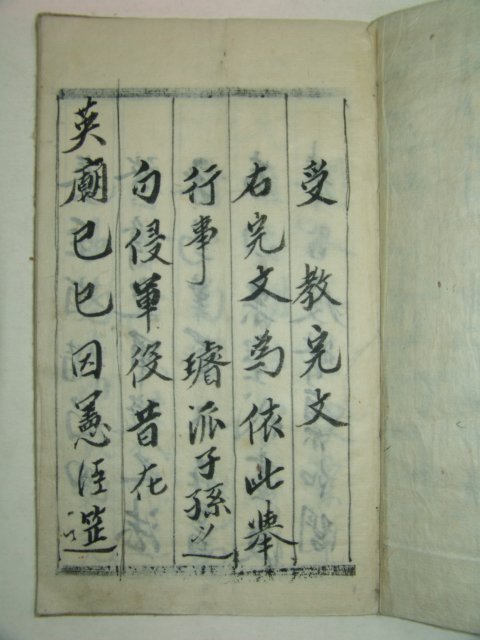 受 教完文
右完文爲依此擧
行事 璿派子孫之
勿侵軍役昔在
英廟己巳因憲臣筵